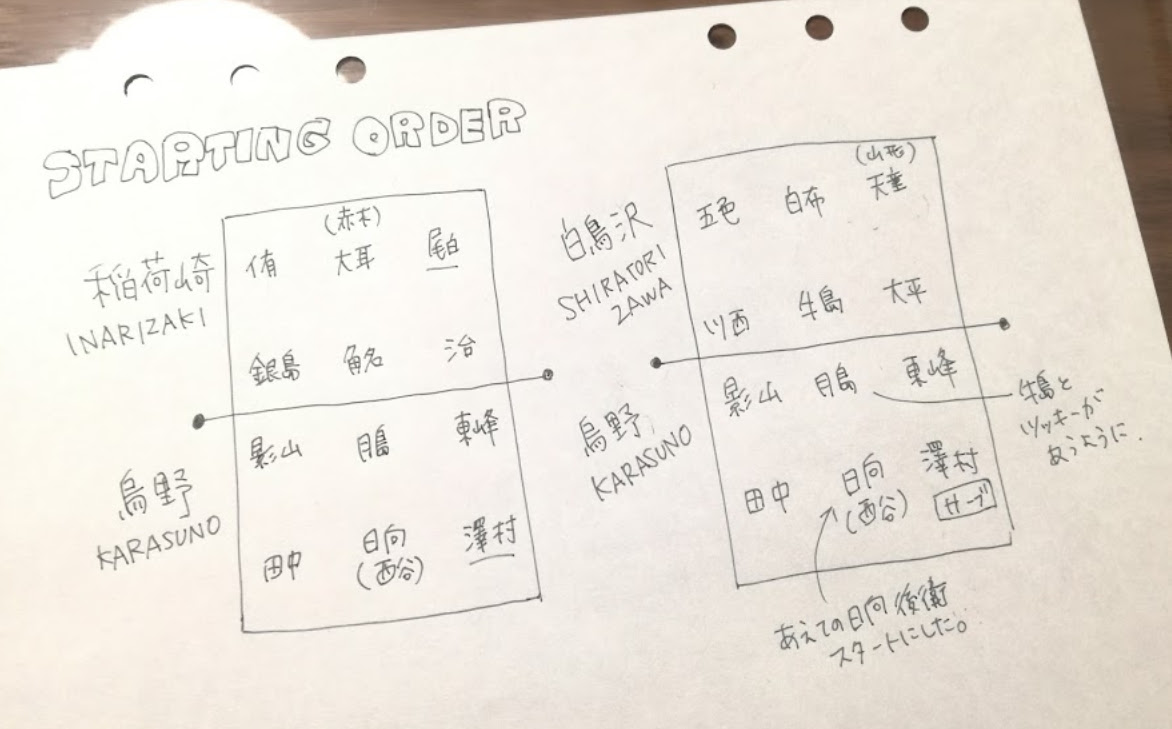 STARTING ORDER
稲荷崎
INARIZAKI
(赤木)
侑 大耳 尾白
銀島 角名 治
烏野
KARASUNO
影山 月島 東峰
田中 日向 澤村
(西谷)
白鳥沢
SHIRATORI
ZAWA
(山形)
五色 白布 天童
川西 牛島 大平
烏野
KARASUNO
影山 月島 東峰
田中 日向 澤村
(西谷) サーブ
牛島と
ツッキーが
あうように.
あえての日向後衛
スタートにした。